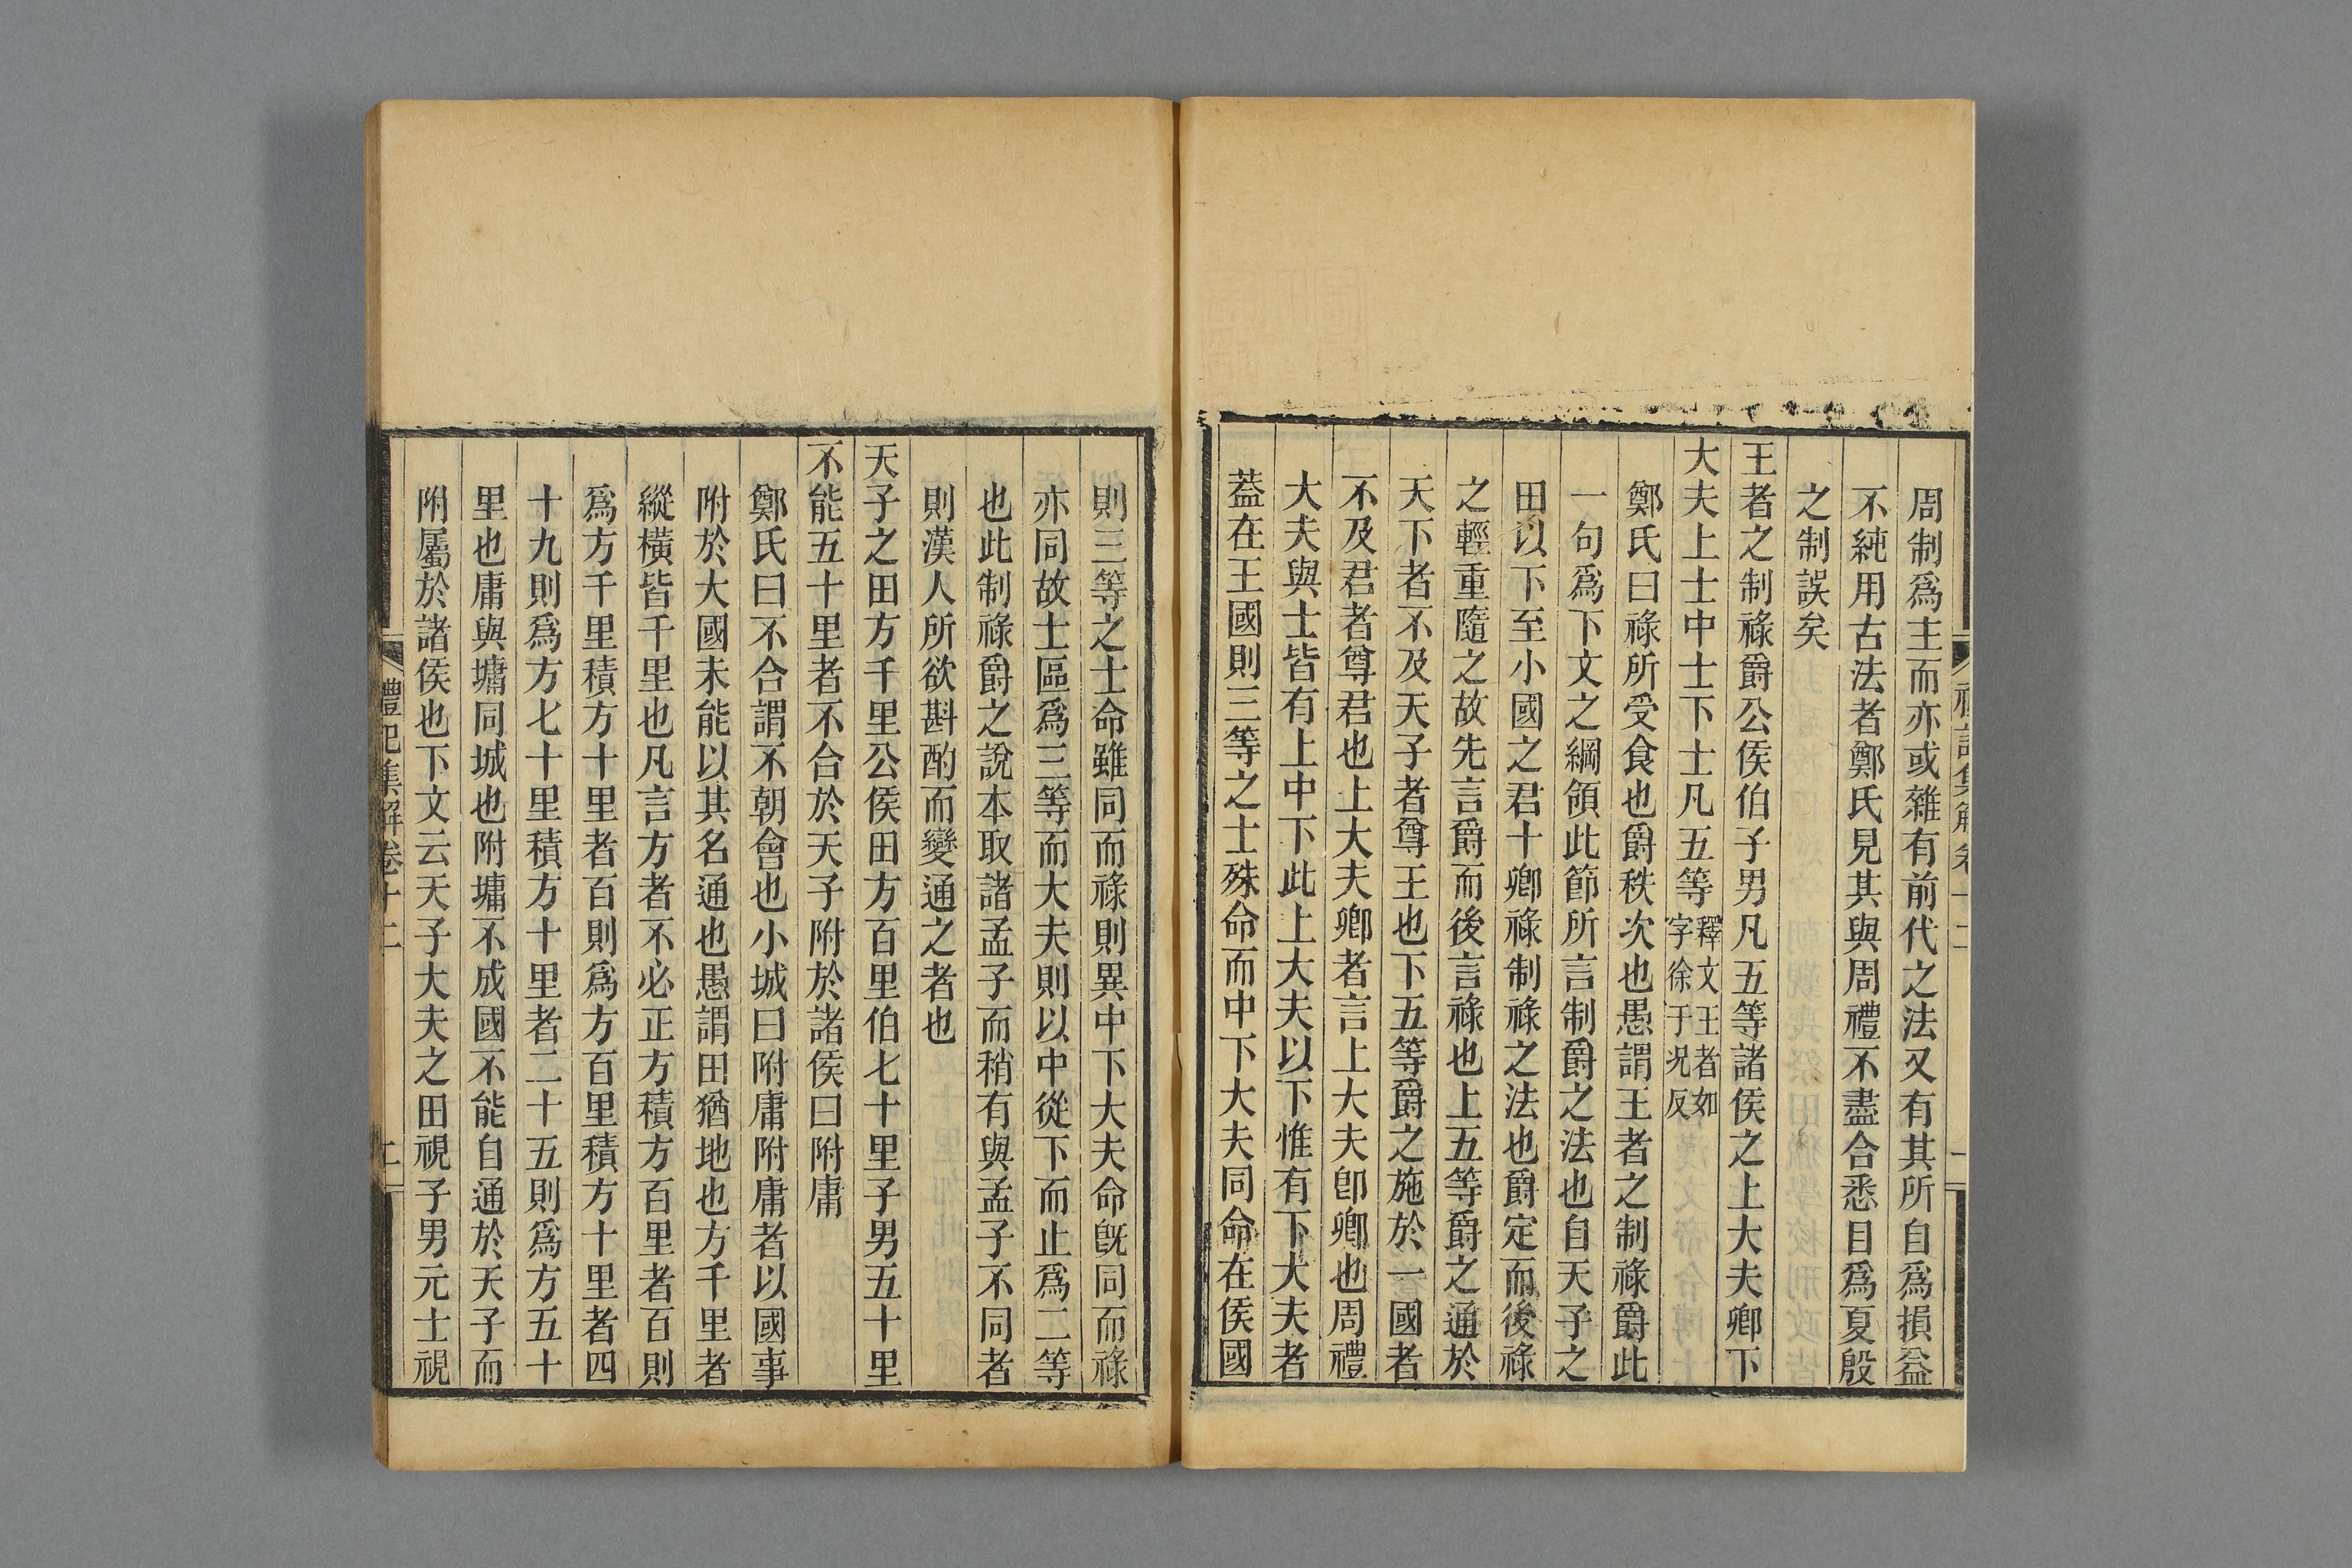 周制爲主而亦或雜有前代之法又有其所自爲損益
不純用古法者鄭氏見其與周禮不盡合悉目爲夏殷
之制誤矣
王者之制祿爵公侯伯子男凡五等諸侯之上大夫卿下
大夫上士中士下士凡五等釋文王者如字徐于況反
鄭氏曰祿所受食也爵秩次也愚謂王者之制祿爵此
一句爲下文之綱領此節所言制爵之法也自天子之
田以下至小國之君十卿祿制祿之法也爵定而後祿
之輕重隨之故先言爵而後言祿也上五等爵之通於
天下者不及天子者尊王也下五等爵之施於一國者
不及君者尊君也上大夫卿者言上大夫卽卿也周禮
大夫與士皆有上中下此上大夫以下惟有下大夫者
葢在王國則三等之士殊命而中下大夫同命在侯國
則三等之士命雖同而祿則異中下大夫命旣同而祿
亦同故士區爲三等而大夫則以中從下而止爲二等
也此制祿爵之說本取諸孟子而稍有與孟子不同者
則漢人所欲斟酌而變通之者也
天子之田方千里公侯田方百里伯七十里子男五十里
不能五十里者不合於天子附於諸侯曰附庸
鄭氏曰不合謂不朝會也小城曰附庸附庸者以國事
附於大國未能以其名通也愚謂田猶地也方千里者
縱橫皆千里也凡言方者不必正方積方百里者百則
爲方千里積方十里者百則爲方百里積方十里者四
十九則爲方七十里積方十里者二十五則爲方五十
里也庸與墉同城也附墉不成國不能自通於天子而
附屬於諸侯也下文云天子大夫之田視子男元士視
禮記集解卷十二
二